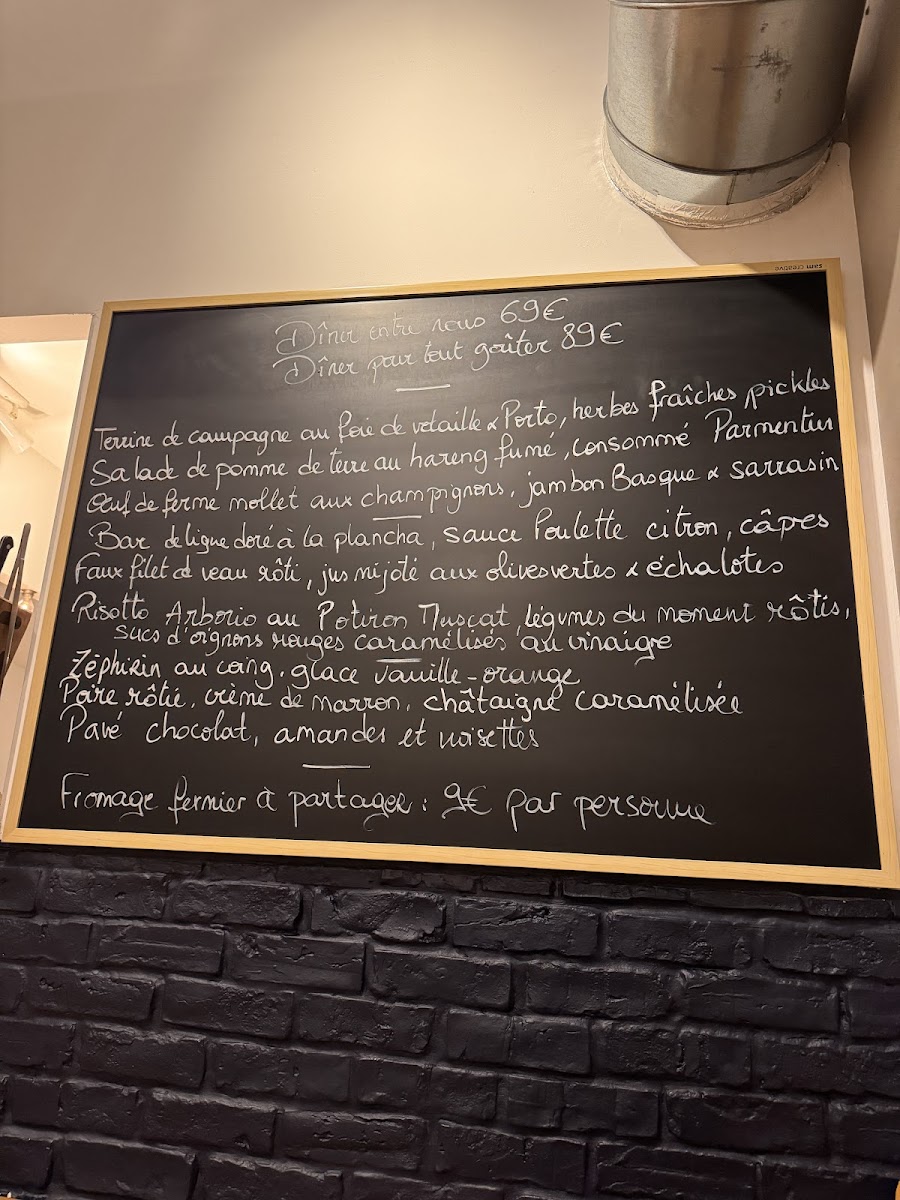 sam creative
Dîner entre nous 69€
Dîner pour tout goûter 89€
Terrine de campagne au foie de volaille & Porto, herbes fraîches pickles
Salade de pomme de terre au hareng fumé, consommé Parmentier
Œuf de ferme mollet aux champignons, jambon Basque & sarrasin
Bar de ligne doré à la plancha, sauce Poulette citron, câpres
Faux filet de veau rôti, jus mijoté aux olives vertes & échalotes
Risotto Arborio au Potiron Muscat, légumes du moment rôtis,
sucs d'oignons rouges caramélisés au vinaigre
Zéphirin au coing, glace vanille-orange
Poire rôtie, crème de marron, châtaigne caramélisée
Pavé chocolat, amandes et noisettes
Fromage fermier à partager : 9€ par personne